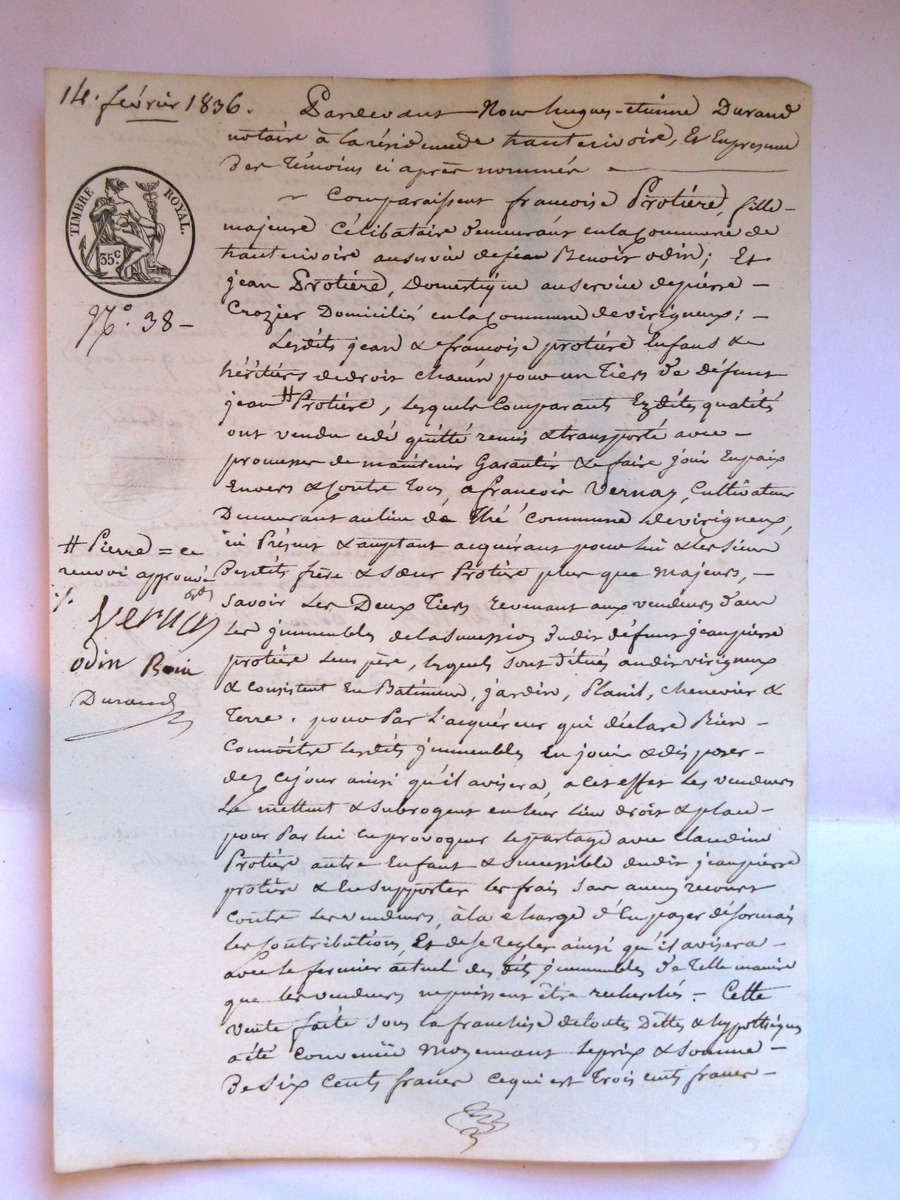 14. février 1836.
Pardevant Nous hugues-etienne Durand
notaire à la résidence de hauterivoire, Et En presence
des Témoins ci après nommés
TIMBRE ROYAL.
35.c
N.o 38 -
Comparaissent francoise Protière, fille
majeure Célibataire demeurant en la Commune de
hauterivoire au service de jean Benoit odin; Et
jean Protière, Domestique au service de pierre
Crozier Domiciliés en la Commune de virigneux; -
Lesdits jean & francoise protière Enfans &
héritiers de droit chacun pour un Tiers de défunt
jean # Protière, lesquels Comparants Ezdites qualités
ont vendu cédé quitté remis & transporté avec -
promesses de maintenir Garantir & faire jouir En paix
Envers & Contre Tous, a francois Vernay, Cultivateur
Demeurant au lieu de Thé Commune de virigneux,
ici Présent & acceptant acquérant pour lui & les siens
Desdits frère & sœur Protière plus que Majeurs, -
Savoir Les Deux Tiers revenant aux vendeurs dans
Les jmmeubles de la succession dudit défunt jean pierre
protière leur père, lesquels sont situés audit virigneux
& consistent En Batiments, jardin, Planil, chenevier &
Terre. pour Par L'acquéreur qui déclare Bien -
Connoitre lesdits jmmeubles En jouir & disposer -
dez Ce jour ainsi qu'il avisera, a cet effet Les vendeurs
Le mettent & subrogent en leur lieu droit & place -
pour Par lui En provoquer le partage avec Claudine
Protière autre Enfant & successible dudit jean pierre
protière & En supporter les frais sans aucun recours
Contre Les vendeurs, à la charge d'En payer désormais
les Contributions, Et de se regler ainsi qu'il avisera -
avec le fermier actuel des dits jmmeubles de Telle manière
que les vendeurs ne puissent être recherchés. - Cette
vente faite sous la franchise de toutes Dettes & hypothèques
a été Convenüe Moyennant le prix & somme -
De Six Cents francs Ce qui est Trois cents francs -
# Pierre = ce
renvoi approuvé
Vernay
odin Benoit
Durand